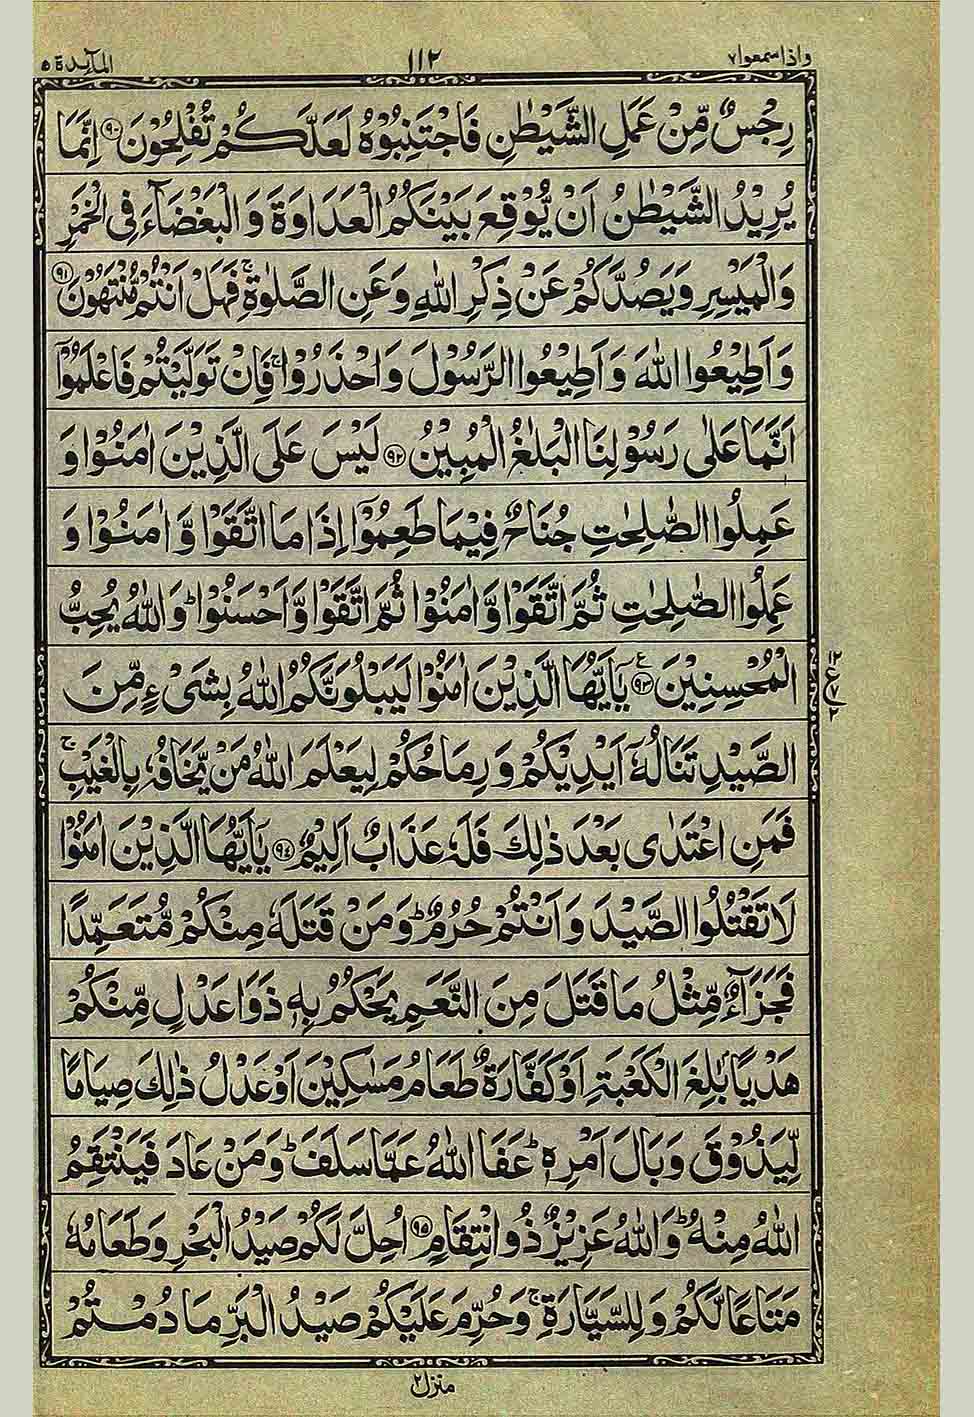 واذا سمعوا٧ ١١٢ المآئدة ٥
رِجْسٌ مِّنْ عَمَلِ الشَّيْطٰنِ فَاجْتَنِبُوْهُ لَعَلَّكُمْ تُفْلِحُوْنَ ﴿٩٠﴾ اِنَّمَا
يُرِيْدُ الشَّيْطٰنُ اَنْ يُّوْقِعَ بَيْنَكُمُ الْعَدَاوَةَ وَ الْبَغْضَآءَ فِى الْخَمْرِ
وَالْمَيْسِرِ وَيَصُدَّكُمْ عَنْ ذِكْرِ اللّٰهِ وَ عَنِ الصَّلٰوةِ ۚ فَهَلْ اَنْتُمْ مُّنْتَهُوْنَ ﴿٩١﴾
وَ اَطِيْعُوا اللّٰهَ وَ اَطِيْعُوا الرَّسُوْلَ وَ احْذَرُوْا ۚ فَاِنْ تَوَلَّيْتُمْ فَاعْلَمُوْٓا
اَنَّمَا عَلٰى رَسُوْلِنَا الْبَلٰغُ الْمُبِيْنُ ﴿٩٢﴾ لَيْسَ عَلَى الَّذِيْنَ اٰمَنُوْا وَ
عَمِلُوا الصّٰلِحٰتِ جُنَاحٌ فِيْمَا طَعِمُوْٓا اِذَا مَا اتَّقَوْا وَّ اٰمَنُوْا وَ
عَمِلُوا الصّٰلِحٰتِ ثُمَّ اتَّقَوْا وَّ اٰمَنُوْا ثُمَّ اتَّقَوْا وَّ اَحْسَنُوْا ؕ وَ اللّٰهُ يُحِبُّ
الْمُحْسِنِيْنَ ﴿٩٣﴾ ع يٰٓاَيُّهَا الَّذِيْنَ اٰمَنُوْا لَيَبْلُوَنَّكُمُ اللّٰهُ بِشَىْءٍ مِّنَ
١٢ ع ٧ ٢
الصَّيْدِ تَنَالُهٗٓ اَيْدِيْكُمْ وَ رِمَاحُكُمْ لِيَعْلَمَ اللّٰهُ مَنْ يَّخَافُهٗ بِالْغَيْبِ ۚ
فَمَنِ اعْتَدٰى بَعْدَ ذٰلِكَ فَلَهٗ عَذَابٌ اَلِيْمٌ ﴿٩٤﴾ يٰٓاَيُّهَا الَّذِيْنَ اٰمَنُوْا
لَا تَقْتُلُوا الصَّيْدَ وَ اَنْتُمْ حُرُمٌ ؕ وَ مَنْ قَتَلَهٗ مِنْكُمْ مُّتَعَمِّدًا
فَجَزَآءٌ مِّثْلُ مَا قَتَلَ مِنَ النَّعَمِ يَحْكُمُ بِهٖ ذَوَا عَدْلٍ مِّنْكُمْ
هَدْيًۢا بٰلِغَ الْكَعْبَةِ اَوْ كَفَّارَةٌ طَعَامُ مَسٰكِيْنَ اَوْ عَدْلُ ذٰلِكَ صِيَامًا
لِّيَذُوْقَ وَبَالَ اَمْرِهٖ ؕ عَفَا اللّٰهُ عَمَّا سَلَفَ ؕ وَ مَنْ عَادَ فَيَنْتَقِمُ
اللّٰهُ مِنْهُ ؕ وَ اللّٰهُ عَزِيْزٌ ذُو انْتِقَامٍ ﴿٩٥﴾ اُحِلَّ لَكُمْ صَيْدُ الْبَحْرِ وَ طَعَامُهٗ
مَتَاعًا لَّكُمْ وَ لِلسَّيَّارَةِ ۚ وَ حُرِّمَ عَلَيْكُمْ صَيْدُ الْبَرِّ مَا دُمْتُمْ
منزل ٢